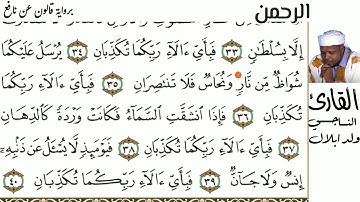 الرحمن
برواية قالون عن نافع
إِلَّا بِسُلْطَٰنٍ ٣٣ فَبِأَيِّ ءَالَآءِ رَبِّكُمَا تُكَذِّبَانِ ٣٤ يُرْسَلُ عَلَيْكُمَا
شُوَاظٌ مِّن نّ۪ارٍ وَنُحَاسٌ فَلَا تَنتَصِرَانِ ٣٥ فَبِأَيِّ ءَالَآءِ رَبِّكُمَا
تُكَذِّبَانِ ٣٦ فَإِذَا اَنشَقَّتِ اِلسَّمَآءُ فَكَانَتْ وَرْدَةً كَالدِّهَانِ
٣٧ فَبِأَيِّ ءَالَآءِ رَبِّكُمَا تُكَذِّبَانِ ٣٨ فَيَوْمَئِذٍ لَّا يُسْـَٔلُ عَن ذَنۢبِهِۦٓ
إِنسٌ وَلَا جَآنٌّ ٣٩ فَبِأَيِّ ءَالَآءِ رَبِّكُمَا تُكَذِّبَانِ ٤٠
القارئ
الناجي
ولد ابلال